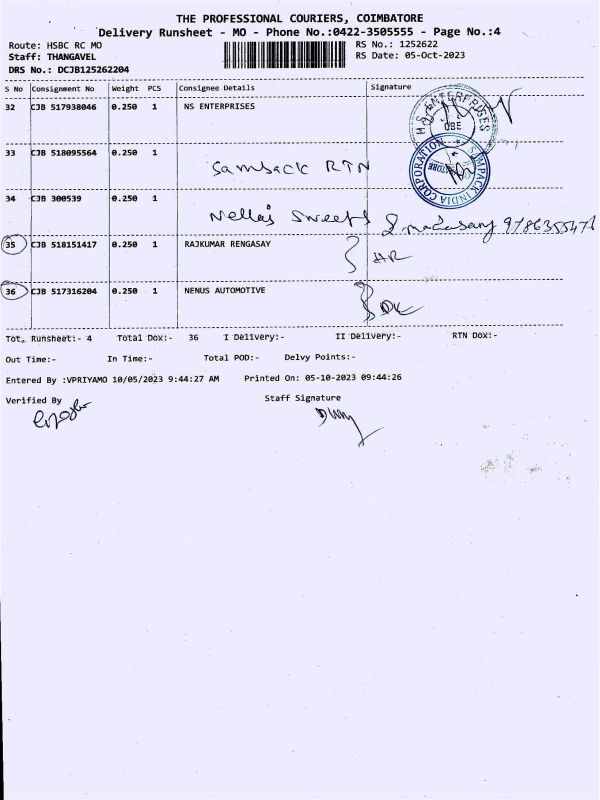 THE PROFESSIONAL COURIERS, COIMBATORE
Delivery Runsheet - MO - Phone No.:0422-3505555 - Page No.:4
Route: HSBC RC MO RS No.: 1252622
Staff: THANGAVEL RS Date: 05-Oct-2023
DRS No.: DCJB125262204
S No Consignment No Weight PCS Consignee Details Signature
32 CJB 517938046 0.250 1 NS ENTERPRISES
33 CJB 518095564 0.250 1
Samback RTN
SAMPACK INDIA CORPORATION
34 CJB 300539 0.250 1
Nellai Sweets 9786355471
35 CJB 518151417 0.250 1 RAJKUMAR RENGASAY
HR
36 CJB 517316204 0.250 1 NENUS AUTOMOTIVE
Tot. Runsheet:- 4 Total Dox:- 36 I Delivery:- II Delivery:- RTN Dox:-
Out Time:- In Time:- Total POD:- Delvy Points:-
Entered By :VPRIYAMO 10/05/2023 9:44:27 AM Printed On: 05-10-2023 09:44:26
Verified By Staff Signature